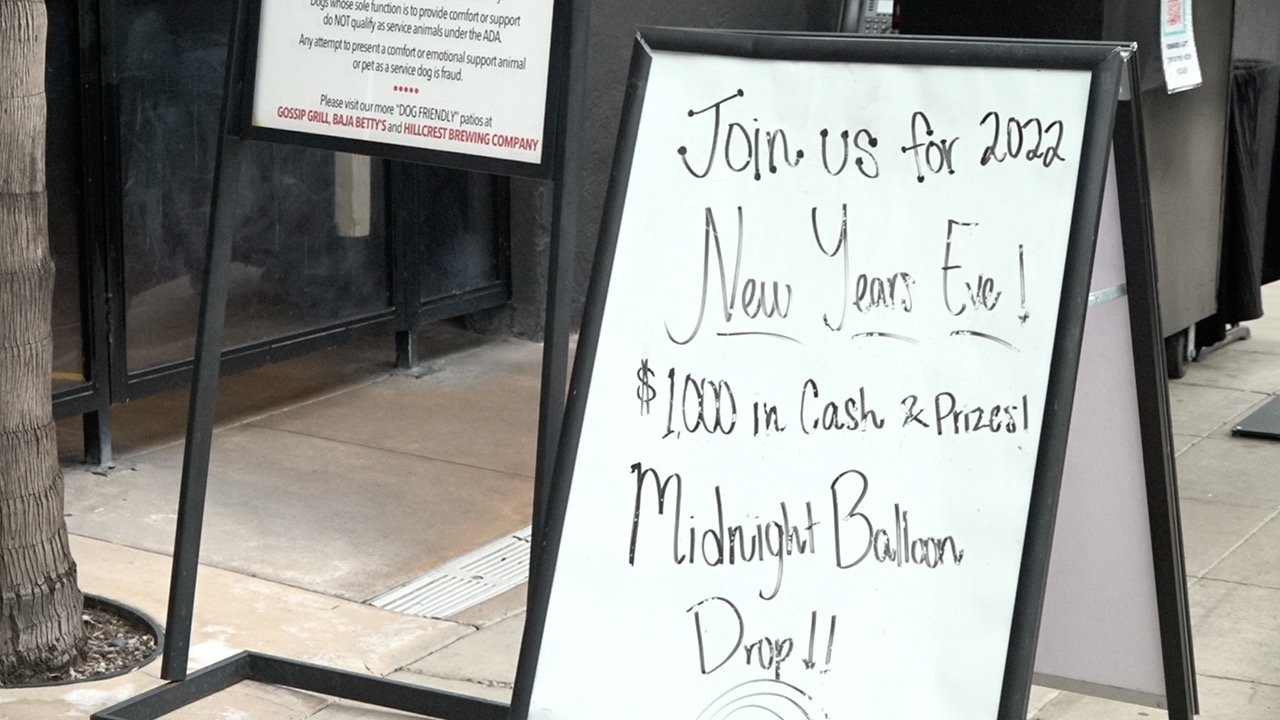 Dogs whose sole function is to provide comfort or support
do NOT qualify as service animals under the ADA.
Any attempt to present a comfort or emotional support animal
or pet as a service dog is fraud.
Please visit our more "DOG FRIENDLY" patios at
GOSSIP GRILL, BAJA BETTY'S and HILLCREST BREWING COMPANY
Join us for 2022
New Years Eve!
$1,000 in Cash & Prizes!
Midnight Balloon
Drop!!